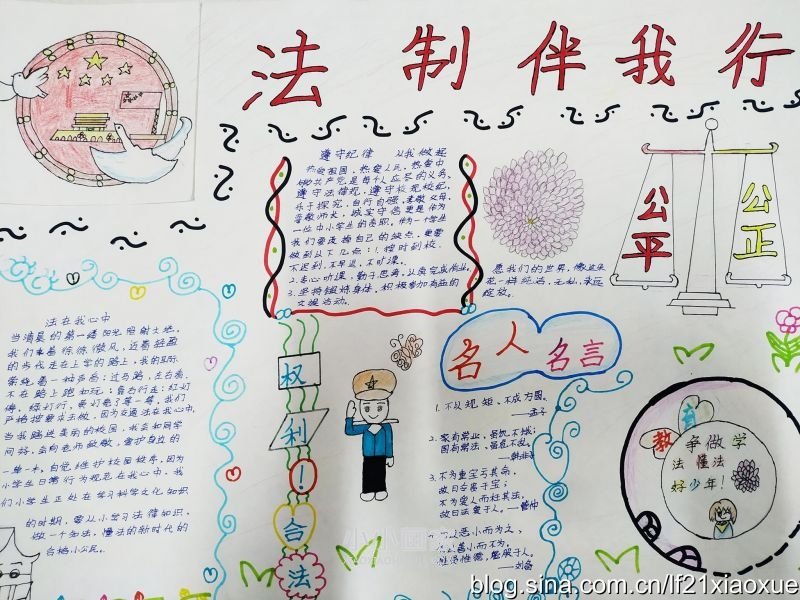 法制伴我行
遵守纪律 从我做起
热爱祖国，热爱人民，热爱中
国共产党，是每个人应尽的义务，
遵守法律规，遵守校规校纪，
乐于探究，自行自强，孝敬父母，
尊敬师长，诚实守信更是作为
一位中小学生的责职，作为一个学生
我们要改掉自己的缺点，更要
做到以下几点：1.按时到校，
不迟到，不早退，不旷课。
2.专心听课，勤于思考，认真完成作业。
3.坚持锻炼身体，积极参加有益的
文娱活动。
愿我们的世界，像这朵
花一样纯洁，无私，永远
绽放。
公平
公正
法在我心中
当清晨的第一缕阳光照射大地，
我们
微风，迈着轻盈
的步伐走在上学的路上，我的耳际
萦绕着一种声音：过马路，左右看，
不在路上跑和玩；
红灯
停，绿灯行，黄灯亮了等一等，我们
严格按要求去做，因为交通法在我心中，
当我踏进美丽的校园，我会和同学
问好，会向老师敬敬，会护身边的
一草一木，自觉维护校园秩序，因为
小学生日常行为规范在我心中，我
们小学生正处在学习科学文化知识
的时期，要从小学习法律知识，
做一个知法、懂法的新时代的
合格小公民。
权
利
！
合
法
名人名言
1.不以规矩，不成方圆。
——孟子
2.家有常业，虽饥不饿；
国有常法，虽危不乱。
——韩非子
3.不为重宝亏其命，
故曰令贵于宝；
不为爱人枉其法，
故曰法爱于人。——管仲
恶小而为之，
善小而不为。
惟贤惟德，能服于人。
——刘备
教育
争做学
法 懂法
好少年！
blog.sina.com.cn/lf21xiaoxue